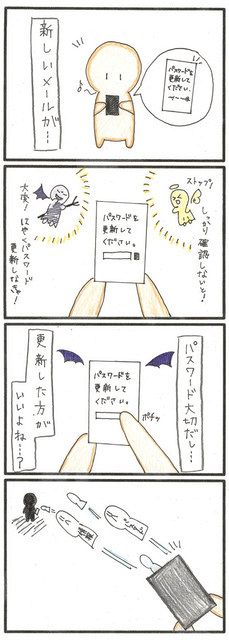 新しいメールが…
パスワードを
更新して
ください。
ストップ!
しっかり確認しないと!
大変!はやくパスワード
更新しなきゃ!
パスワードを
更新して
ください。
パスワード大切だし…
パスワードを
更新して
ください。
ポチッ
更新した方が
いいよね…?